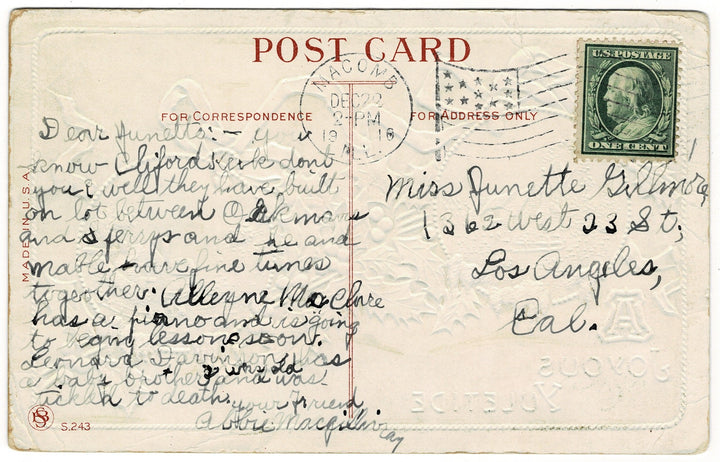 POST CARD
MACOMB
DEC 22
2-PM
19 16
ILL.
U.S. POSTAGE
ONE CENT
FOR CORRESPONDENCE
FOR ADDRESS ONLY
Dear Junette:- you
know Cliford dont
you & well they have built
on lot between
and and he and
mable have fine times
together. Mc Clare
has a piano and is going
to lessons soon.
Leonard has
a baby brother + 3 wks old and was
tickled to death. your friend
Abbie Macgillivray
Miss Junette Gillmore
1362 West 23 St,
Los Angeles,
Cal.
MADE IN U.S.A.
S.243
A
JOYOUS
YULETIDE